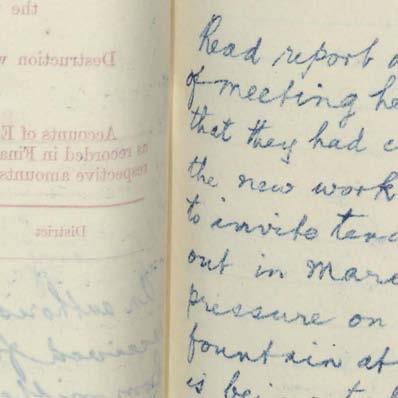 the
Destruction
Accounts of E
as recorded in Fina
respective amounts
District
Read report
of meeting he
that they had c
the new work
to invite Tend
out in Marc
pressure on
fountain at
is being